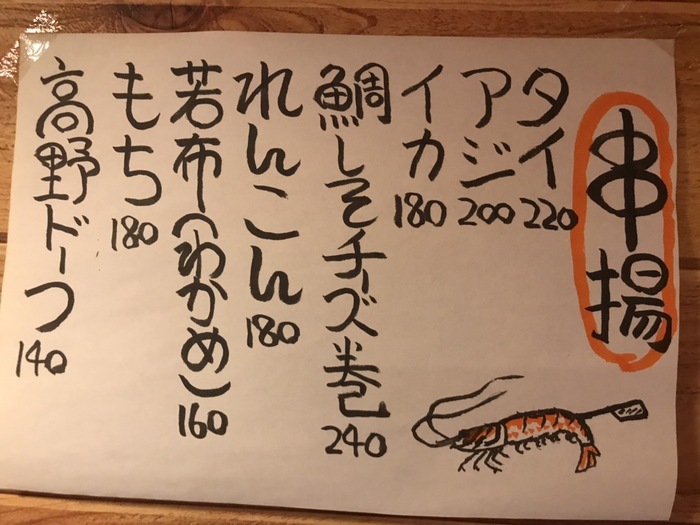 串揚
タイ220
アジ200
イカ180
鯛しそチーズ巻240
れんこん180
若布(わかめ)160
もち180
高野ドーフ140